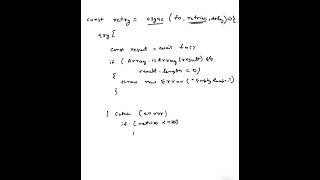 const retry = async (fn, retries, delay) => {
try {
const result = await fn()
if (Array.isArray(result) &&
result.length < 0)
{
throw new Error(
}
} catch (error)
if (retries <=